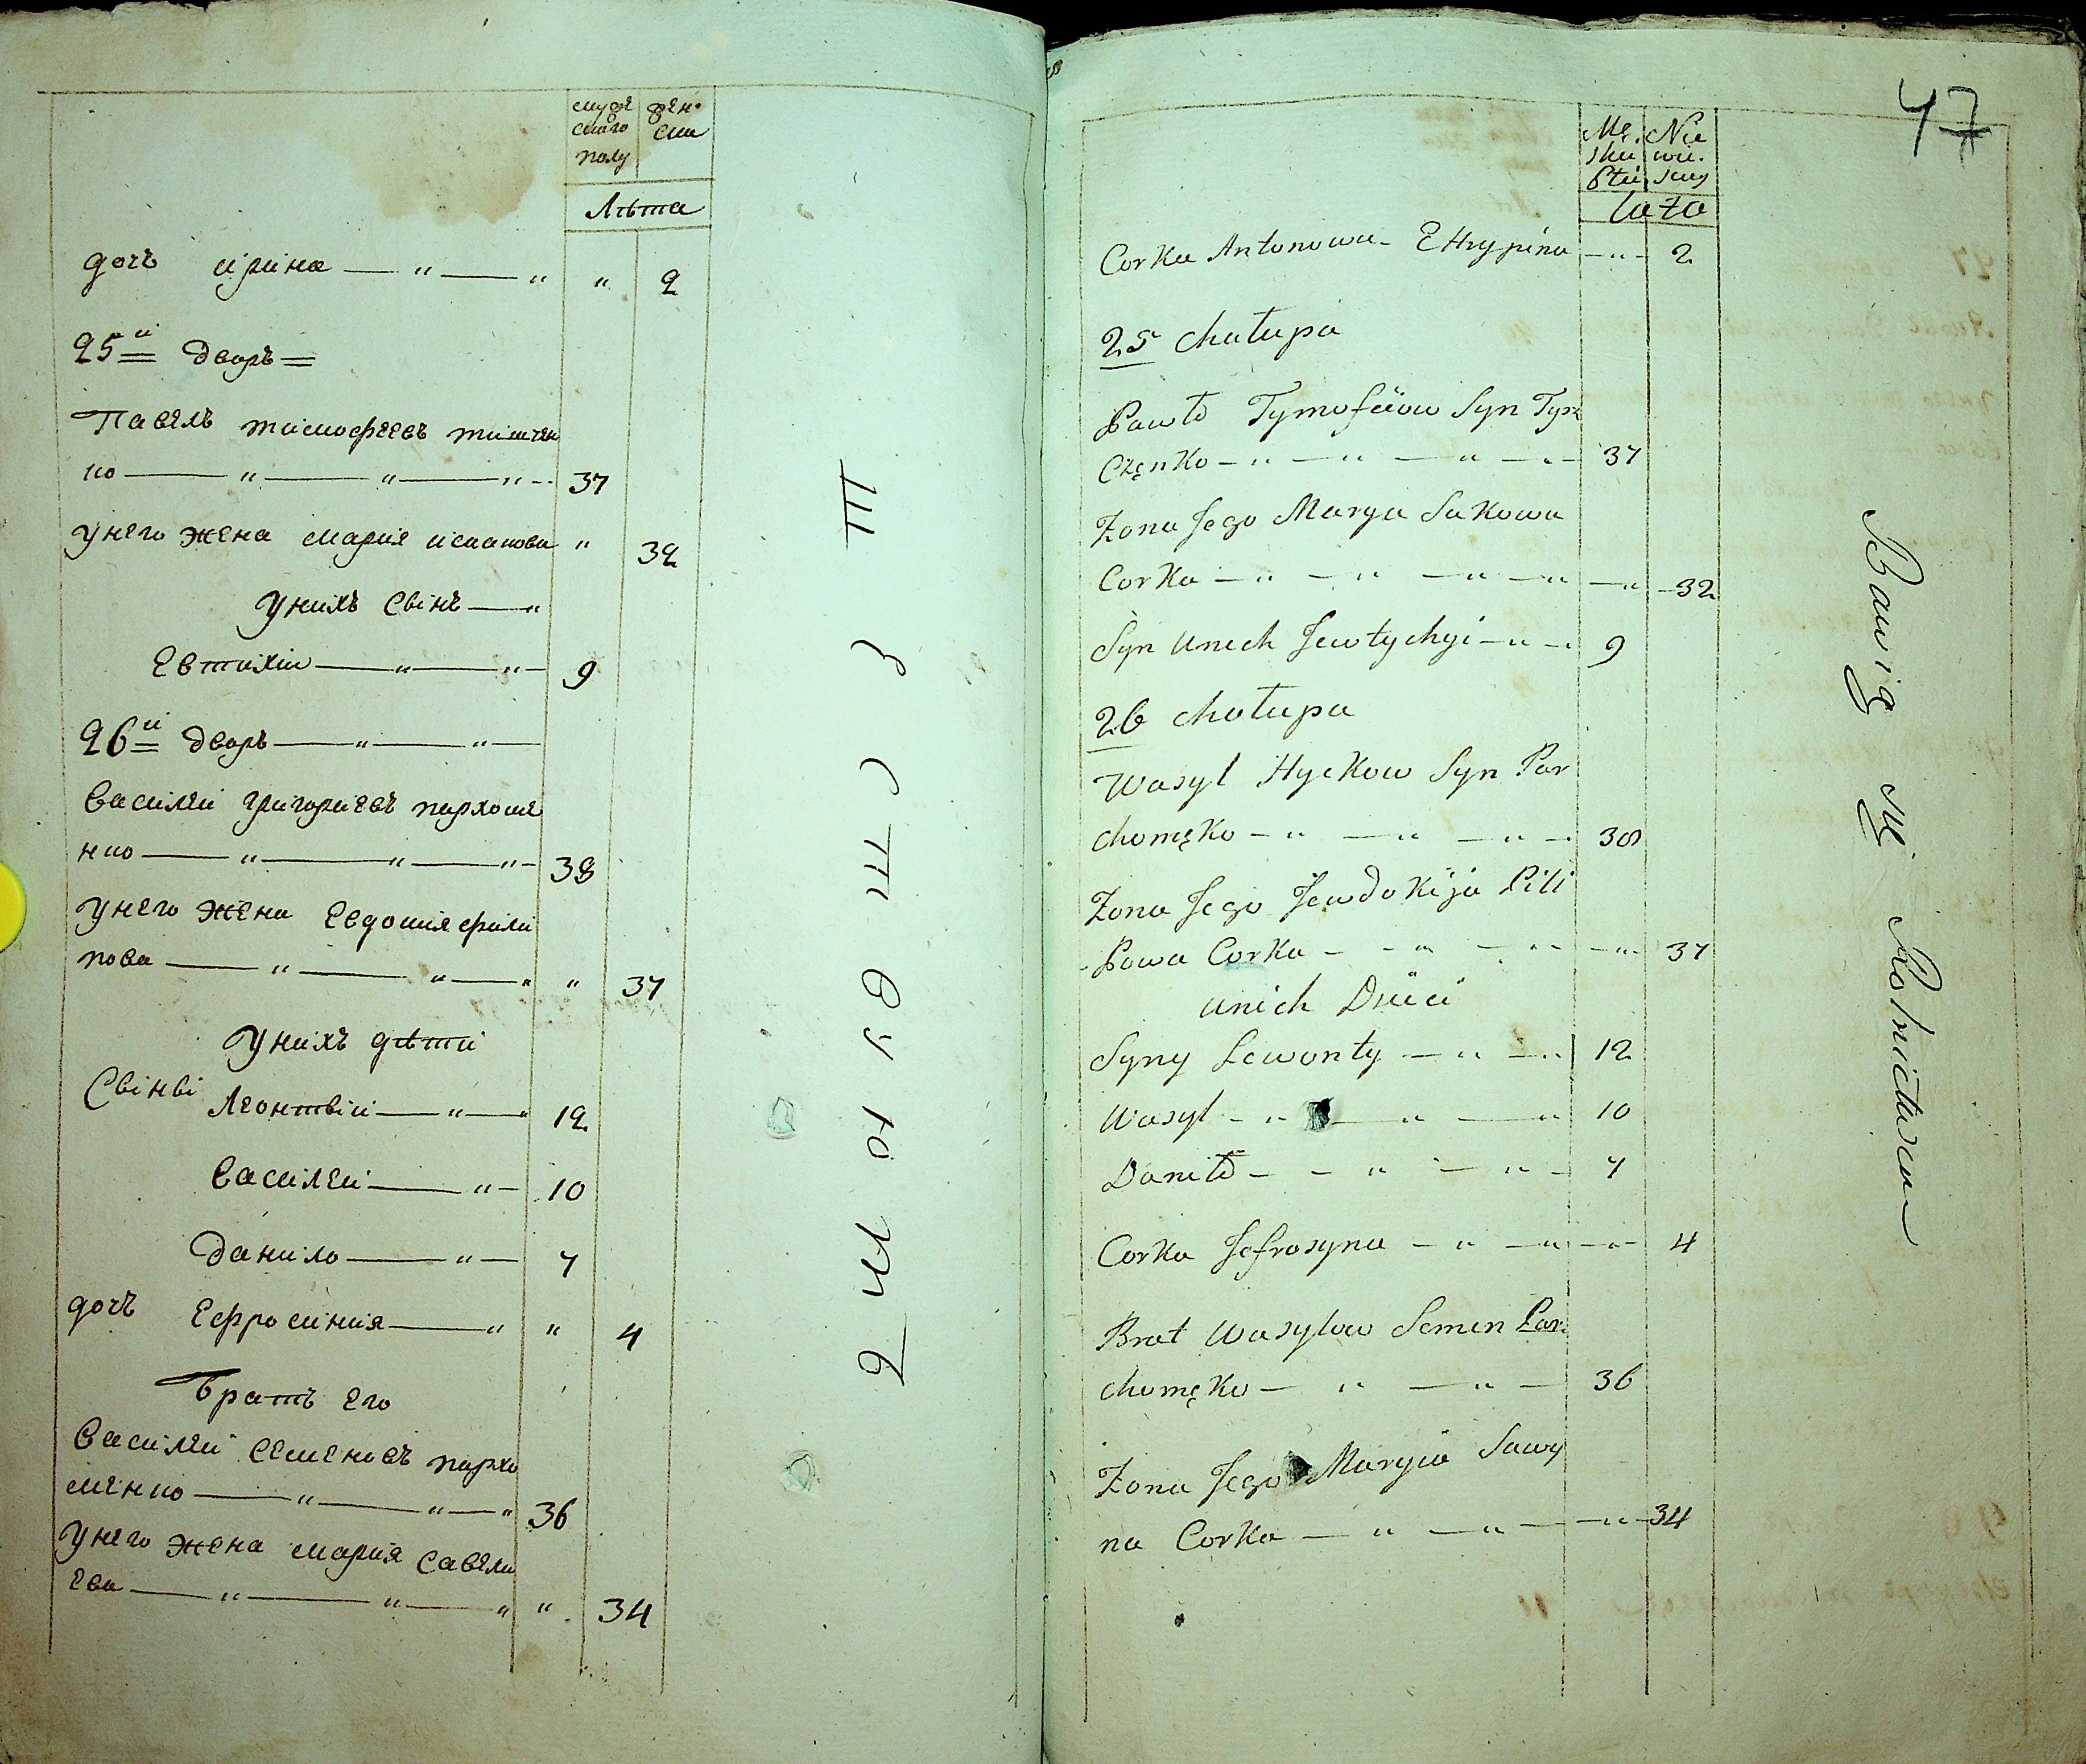 муже
скаго
полу
жен-
ски
Лѣта
дочь ирина — " — " " 2
25й дворъ =
Павелъ тимофеевъ тишчен
ко — " — " — " - 37
унего жена мария исакова " 32
Унихъ Синъ — "
Евтихіи — " — " — 9
26й дворъ — " — " —
Василеи григориевъ пархоме
нко — " — " — " - 38
унего жена Евдокия фили
пова — " — " — " " 37
Унихъ дѣти
Сінві Леонтвіи — " — " 12
Василеи — " — 10
данило — " — 7
дочь Ефросиния — " " 4
Братъ Его
Василеи Семеновъ пархо
менко — " — " — " 36
унего жена мария Савели
ева — " — " — " " 34
47
Mę.
skiei
Płci
Nie
wie.
sciey
lata
Corka Antonowa - EHrypina — " - 2
25 chałupa
Pawło Tymofiiow Syn Tysz
Częnko - " — " — " — " - 37
Zona Jego Marya Sakowa
Corka — " — " — " — " — " - 32
Syn Unich Jewtychyi — " - " 9
26 chałupa
Wasyl Hyckow Syn Par
chomęko — " — " — " - 38
Zona Jego Jewdokija Pili
Powa Corka — - " — " — " 37
Unich Dzieci
Syny Lewonty — " — " 12
Wasyl - " — " — " 10
Daniło — - " — " — 7
Corka Jefrosyna — " — " — " - 4
Brat Wasylow Semen Par.
chomęko — " — " — 36
Zona Jego Maryia Sawy
na Corka — " — " — " - 34
Bawią się Rolnictwem